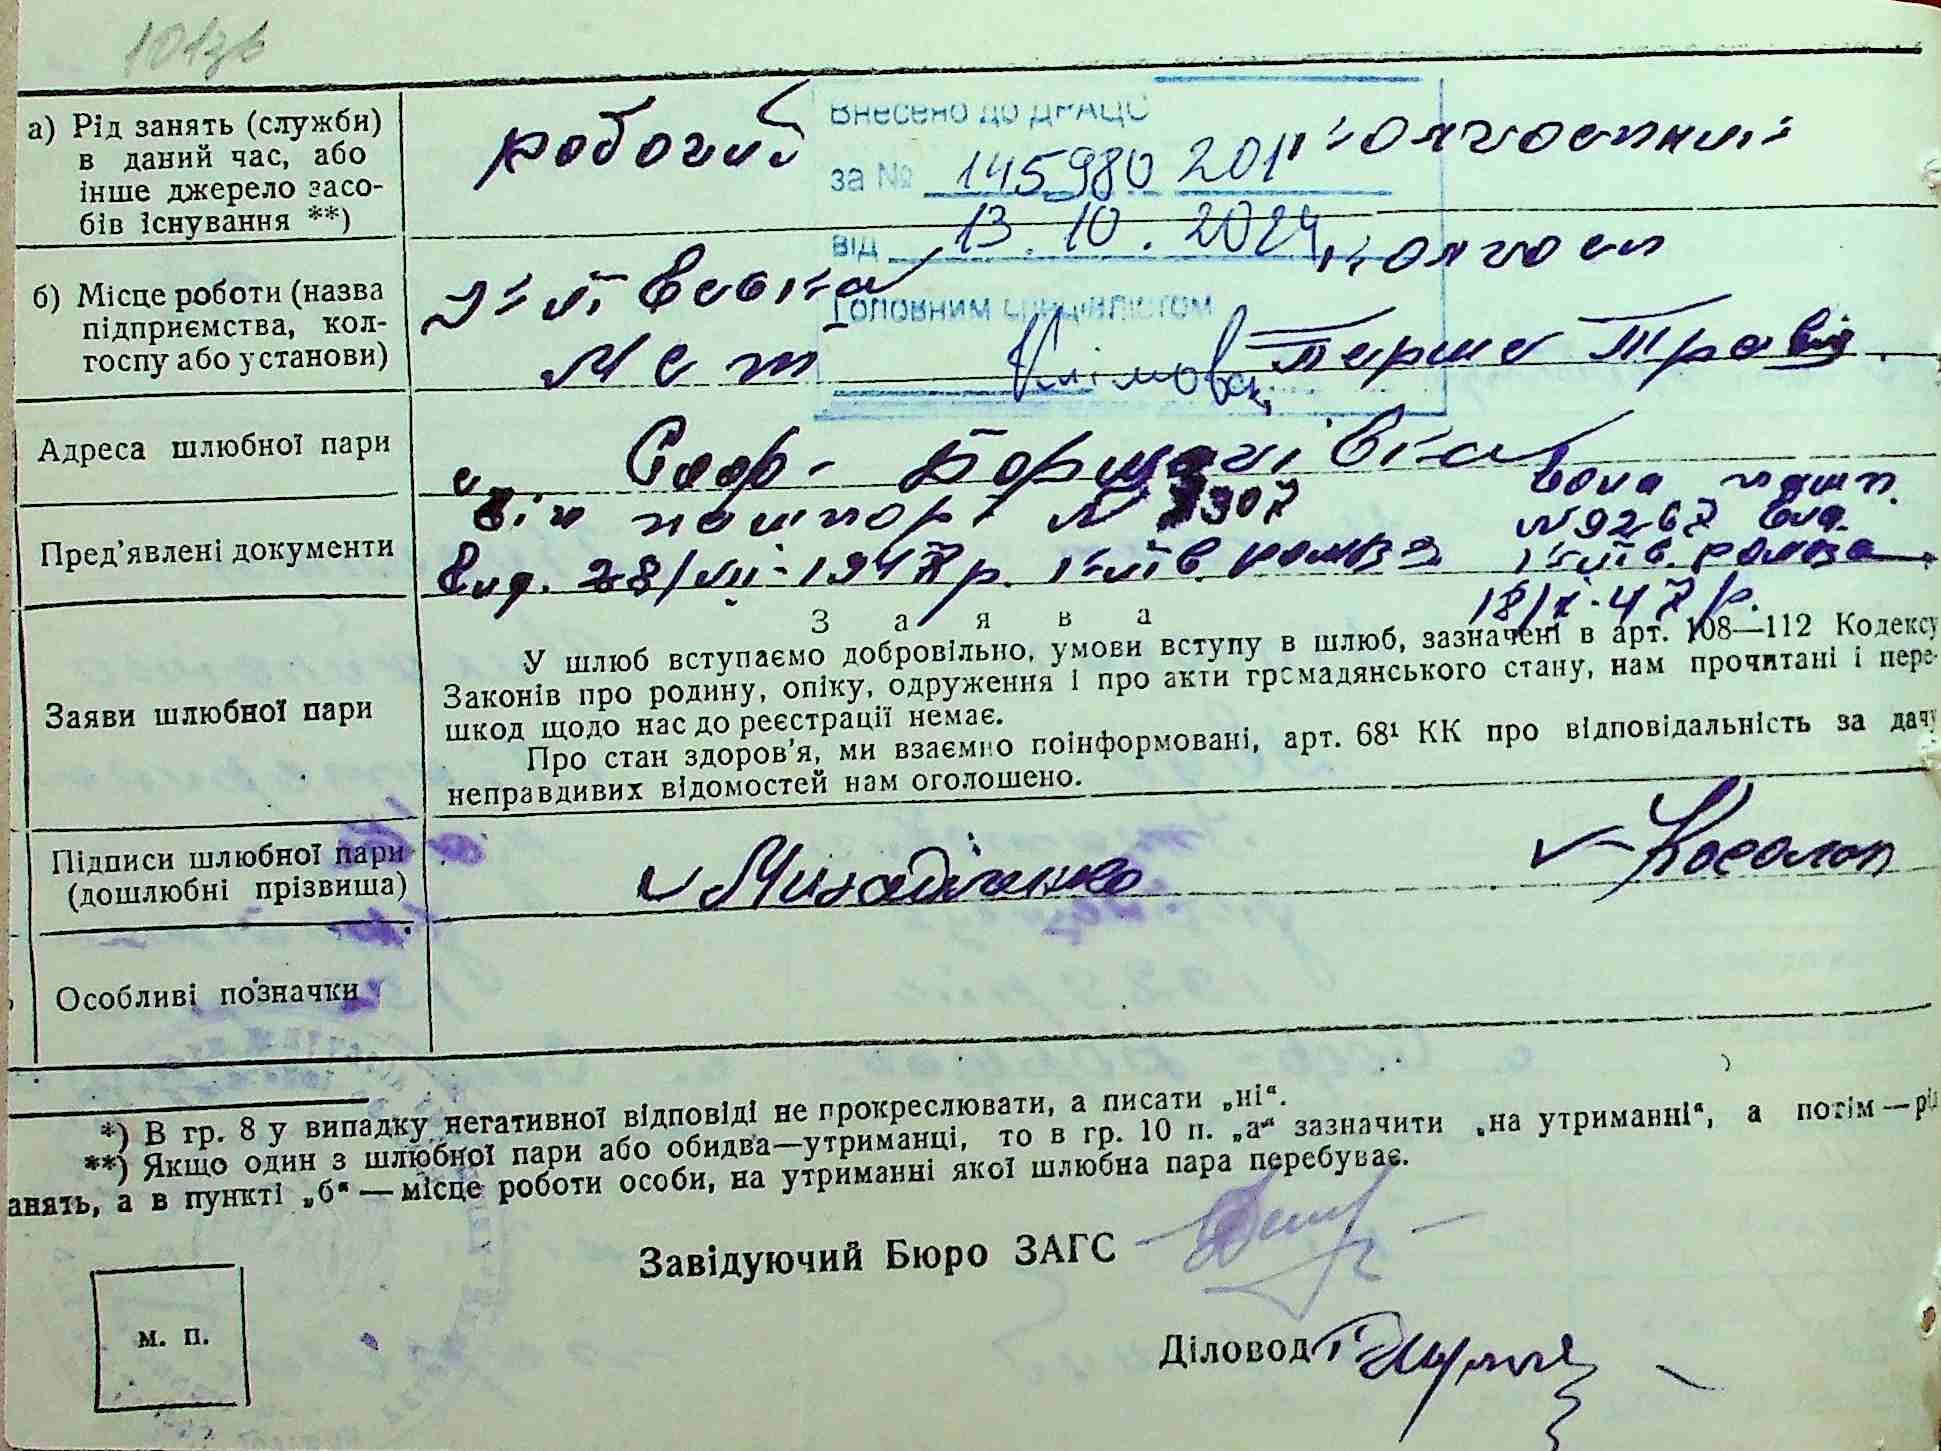 101зв
а) Рід занять (служби)
в даний час, або
інше джерело засо-
бів існування **)
робочий
колгоспниця
Внесено до ДРАЦС
за № 145980 201
від 13.10.2024
Головним спеціалістом
Клімова
б) Місце роботи (назва
підприємства, кол-
госпу або установи)
Київська
колгосп
Перше Травня
Адреса шлюбної пари
с. Соф- Борщагівка
Пред’явлені документи
Він паспорт №
вид. 28/VII-1947р. Київ.
вона пашп.
№9267 вид.
Київ.
18/X-47р.
Заяви шлюбної пари
Заява
У шлюб вступаємо добровільно, умови вступу в шлюб, зазначені в арт. 108—112 Кодексу
Законів про родину, опіку, одруження і про акти громадянського стану, нам прочитані і пере-
шкод щодо нас до реєстрації немає.
Про стан здоров’я, ми взаємно поінформовані, арт. 68¹ КК про відповідальність за дачу
неправдивих відомостей нам оголошено.
Підписи шлюбної пари
(дошлюбні прізвища)
Косолап
Особливі позначки
*) В гр. 8 у випадку негативної відповіді не прокреслювати, а писати „ні“.
**) Якщо один з шлюбної пари або обидва—утриманці, то в гр. 10 п. „а“ зазначити „на утриманні“, а потім — рід
анять, а в пункті „б“ — місце роботи особи, на утриманні якої шлюбна пара перебуває.
Завідуючий Бюро ЗАГС
м. п.
Діловод